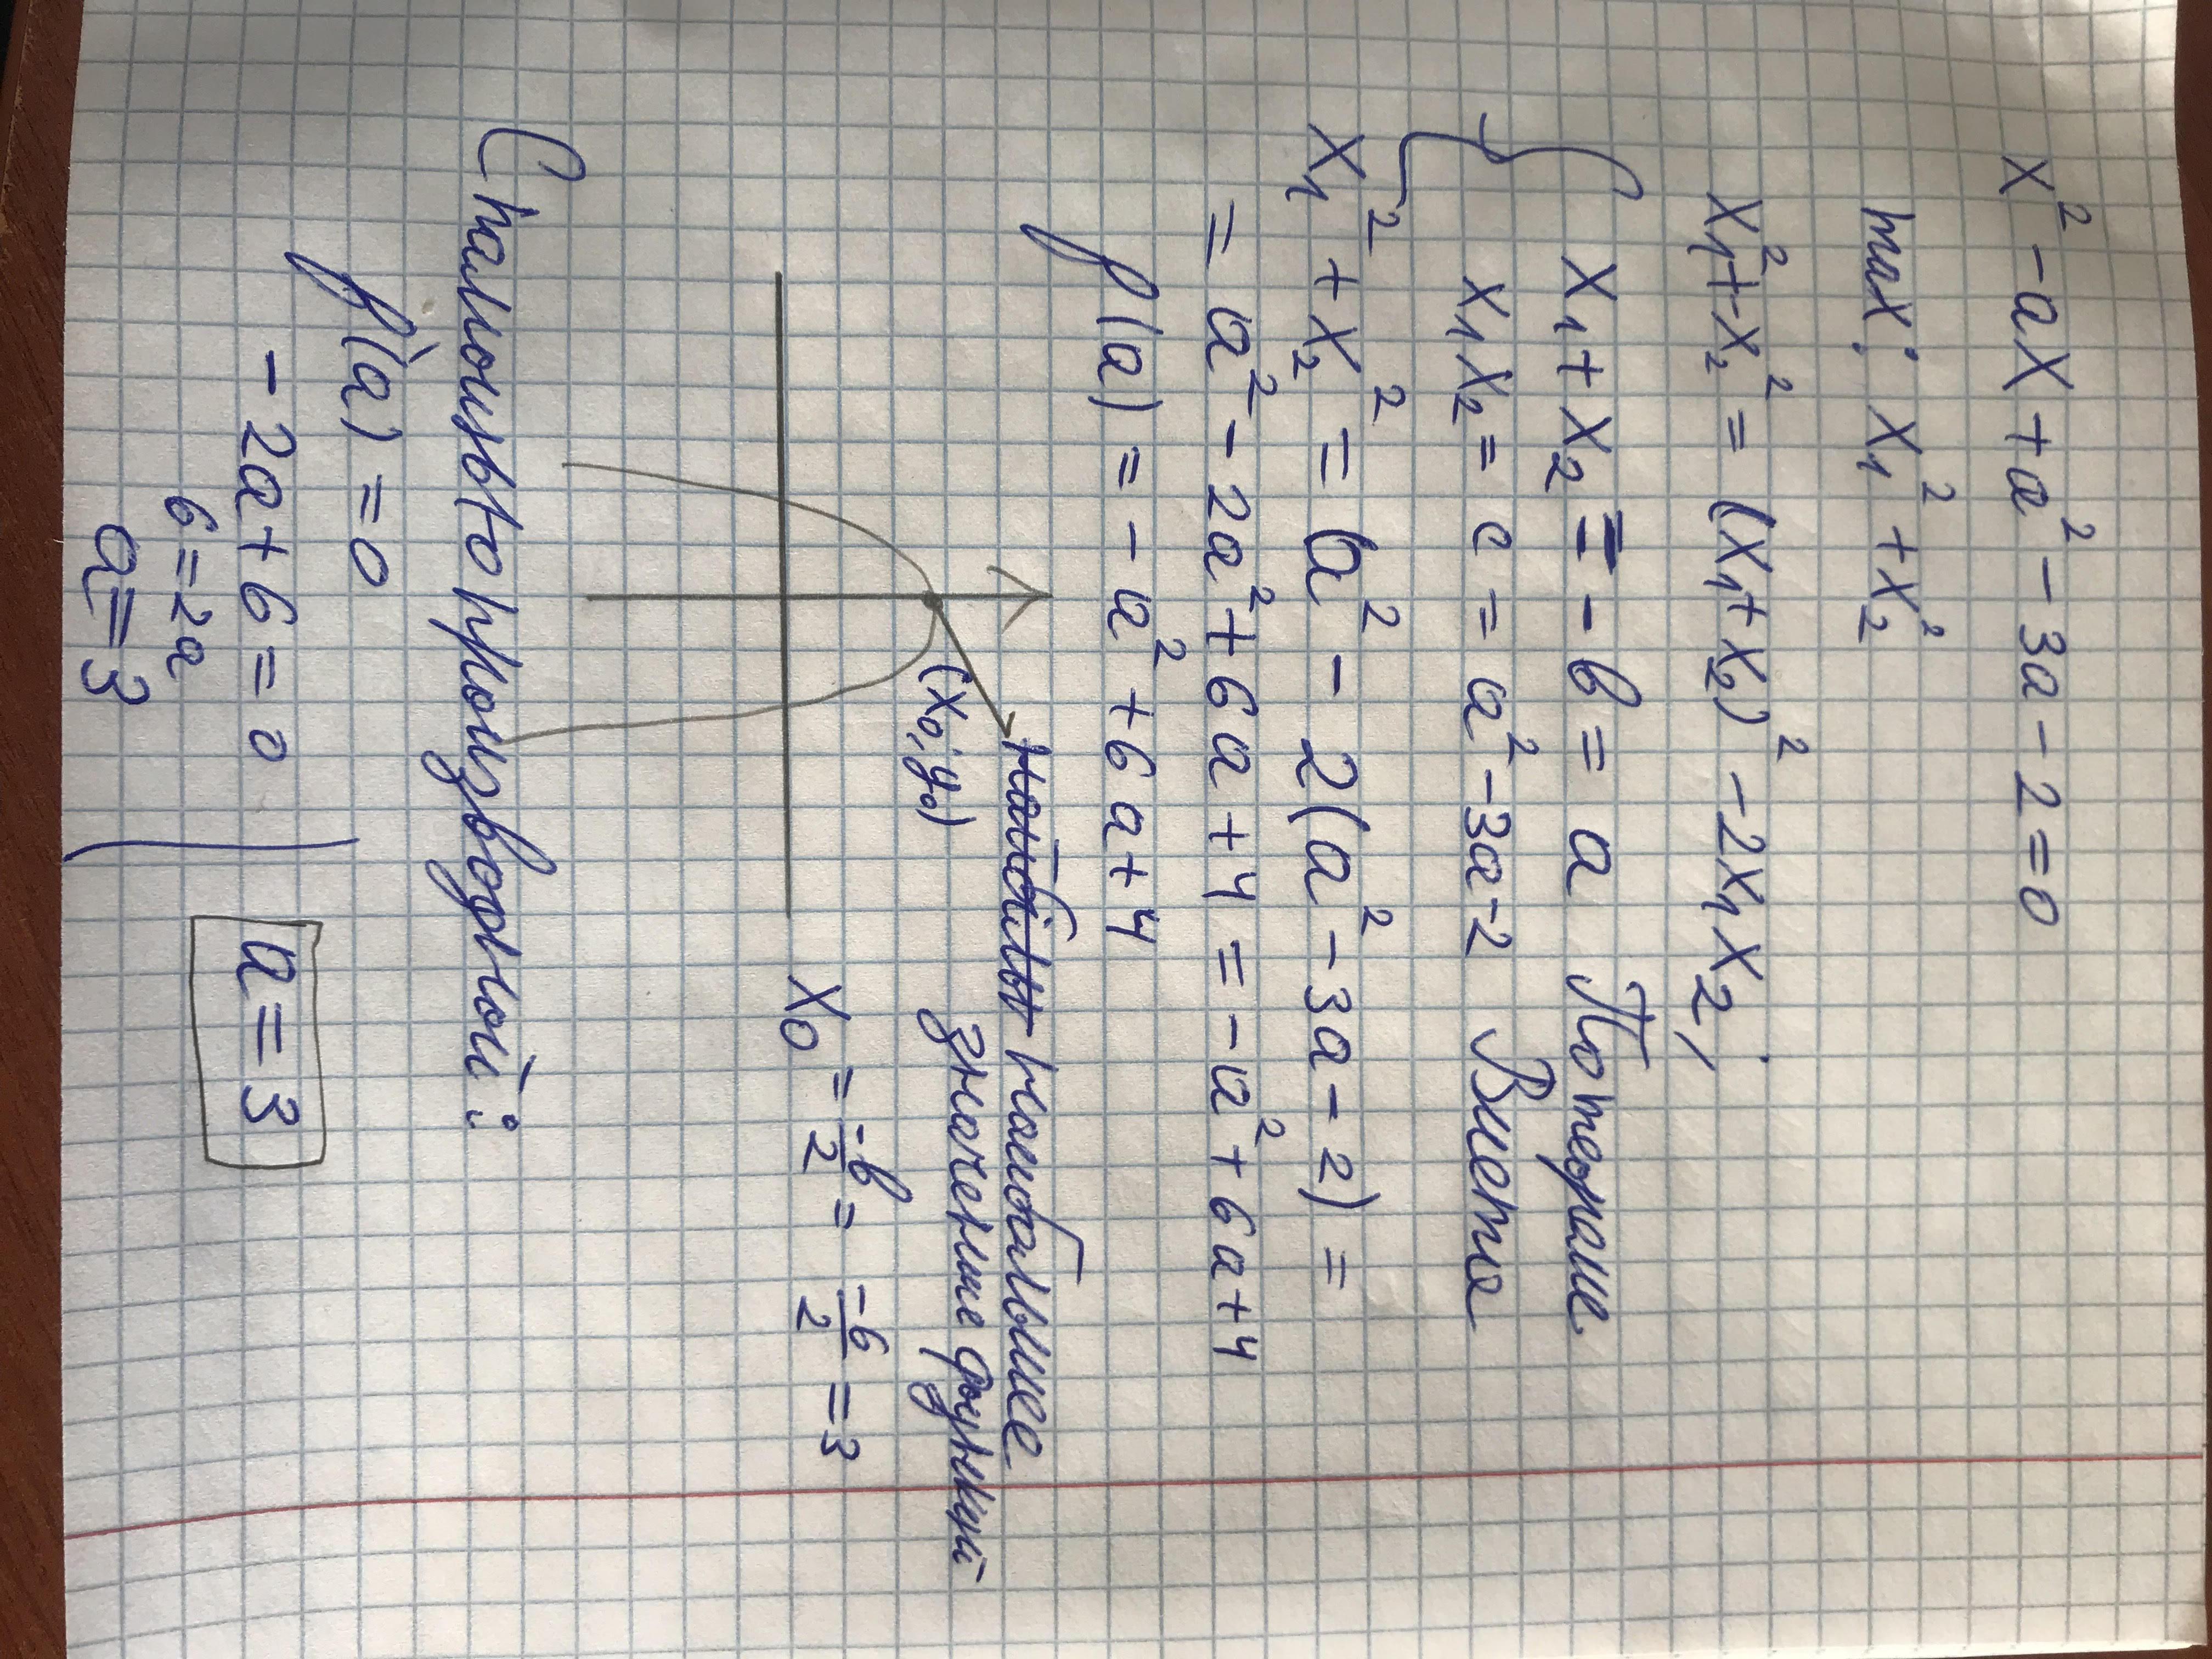 x² - ax + a² - 3a - 2 = 0
max: x₁² + x₂²
x₁² + x₂² = (x₁ + x₂)² - 2x₁x₂;
{ x₁ + x₂ = -b = a По теореме
x₁x₂ = c = a² - 3a - 2 Виета
x₁² + x₂² = a² - 2(a² - 3a - 2) =
= a² - 2a² + 6a + 4 = -a² + 6a + 4
f(a) = -a² + 6a + 4
наибольшее
(x₀; y₀) значение функций
x₀ = -b/2 = -6/2 = 3
С помощью производной:
f'(a) = 0
-2a + 6 = 0
6 = 2a
a = 3
a = 3